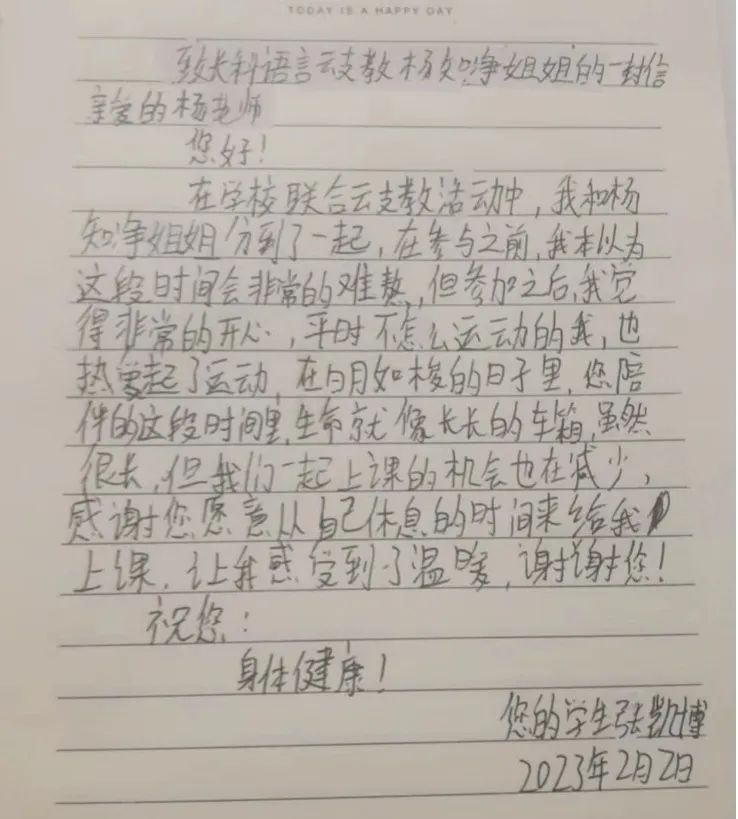 TODAY IS A HAPPY DAY
致长科语言云支教杨知净姐姐的一封信
亲爱的杨老师
您好！
在学校联合云支教活动中，我和杨
知净姐姐分到了一起，在参与之前，我本以为
这段时间会非常的难熬，但参加之后，我觉
得非常的开心，平时不怎么运动的我，也
热爱起了运动，在日月如梭的日子里，您陪
伴的这段时间里，生命就像长长的车箱，虽然
很长，但我们一起上课的机会也在减少，
感谢您愿意从自己休息的时间来给我
上课，让我感受到了温暖，谢谢您！
祝您：
身体健康！
您的学生张凯博
2023年2月2日